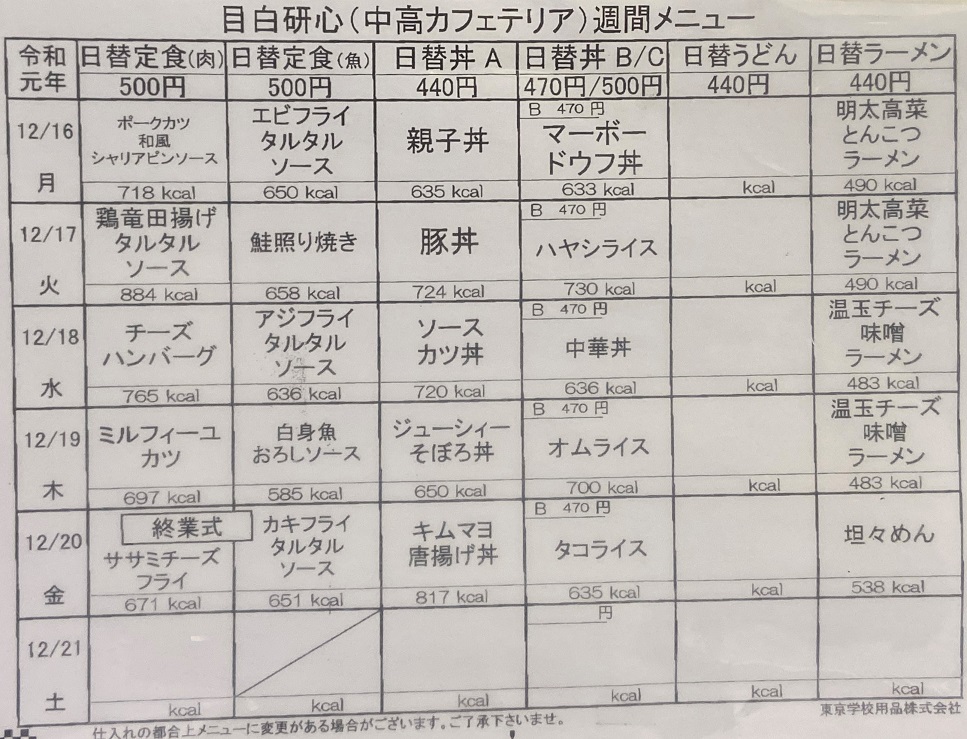 目白研心（中高カフェテリア）週間メニュー
令和
元年
日替定食(肉)
500円
日替定食(魚)
500円
日替丼 A
440円
日替丼 B/C
470円/500円
日替うどん
440円
日替ラーメン
440円
12/16
月
ポークカツ
和風
シャリアピンソース
718 kcal
エビフライ
タルタル
ソース
650 kcal
親子丼
635 kcal
B 470 円
マーボー
ドウフ丼
633 kcal
kcal
明太高菜
とんこつ
ラーメン
490 kcal
12/17
火
鶏竜田揚げ
タルタル
ソース
884 kcal
鮭照り焼き
658 kcal
豚丼
724 kcal
B 470 円
ハヤシライス
730 kcal
kcal
明太高菜
とんこつ
ラーメン
490 kcal
12/18
水
チーズ
ハンバーグ
765 kcal
アジフライ
タルタル
ソース
636 kcal
ソース
カツ丼
720 kcal
B 470 円
中華丼
636 kcal
kcal
温玉チーズ
味噌
ラーメン
483 kcal
12/19
木
ミルフィーユ
カツ
697 kcal
白身魚
おろしソース
585 kcal
ジューシィー
そぼろ丼
650 kcal
B 470 円
オムライス
700 kcal
kcal
温玉チーズ
味噌
ラーメン
483 kcal
12/20
金
終業式
ササミチーズ
フライ
671 kcal
カキフライ
タルタル
ソース
651 kcal
キムマヨ
唐揚げ丼
817 kcal
B 470 円
タコライス
635 kcal
kcal
坦々めん
538 kcal
12/21
土
kcal
kcal
kcal
円
kcal
kcal
kcal
仕入れの都合上メニューに変更がある場合がございます。ご了承下さいませ。
東京学校用品株式会社